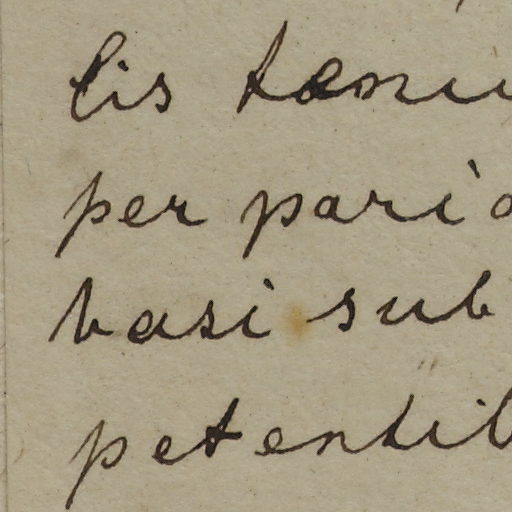 lis tenu
per paria
basi sub
petentib